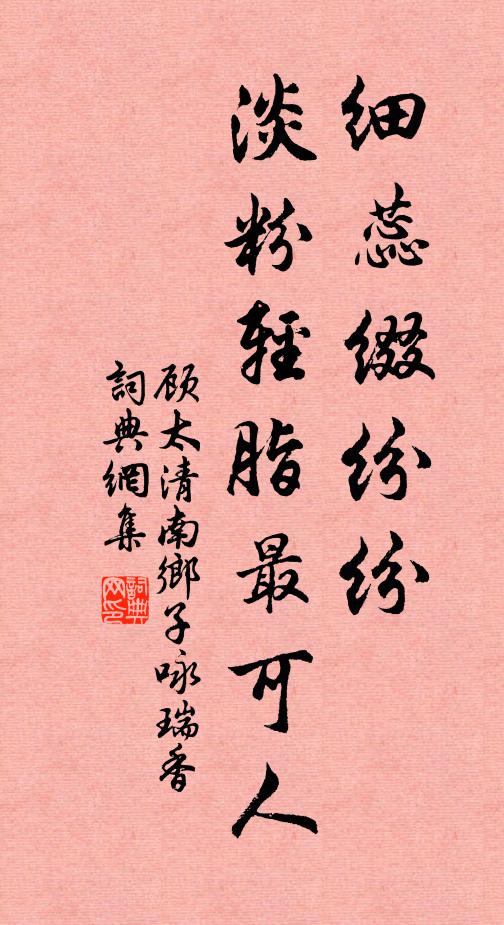 细蕊缀纷纷
淡粉轻脂最可人
顾太清南乡子咏瑞香
词典网集
词典网印